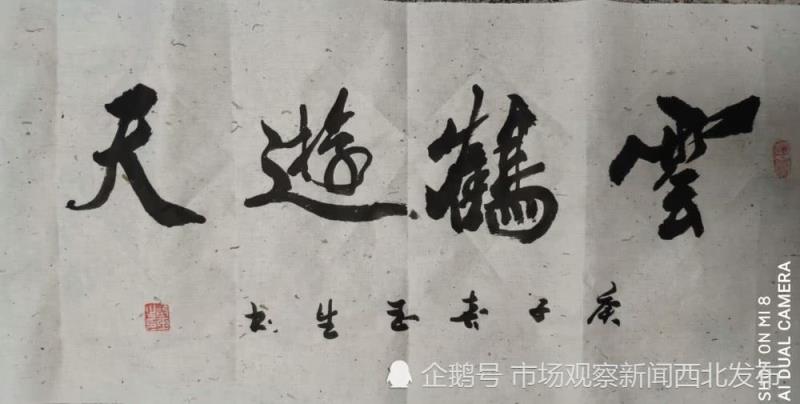 雲鶴遊天
庚子春玉生书
企鹅号 市场观察新闻西北发布
SHOT ON MI 8
AI DUAL CAMERA